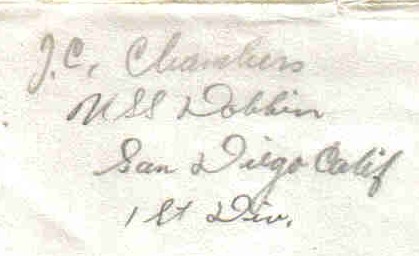 J.C. Chambers
USS Dobbin
San Diego Calif
1 St Div.